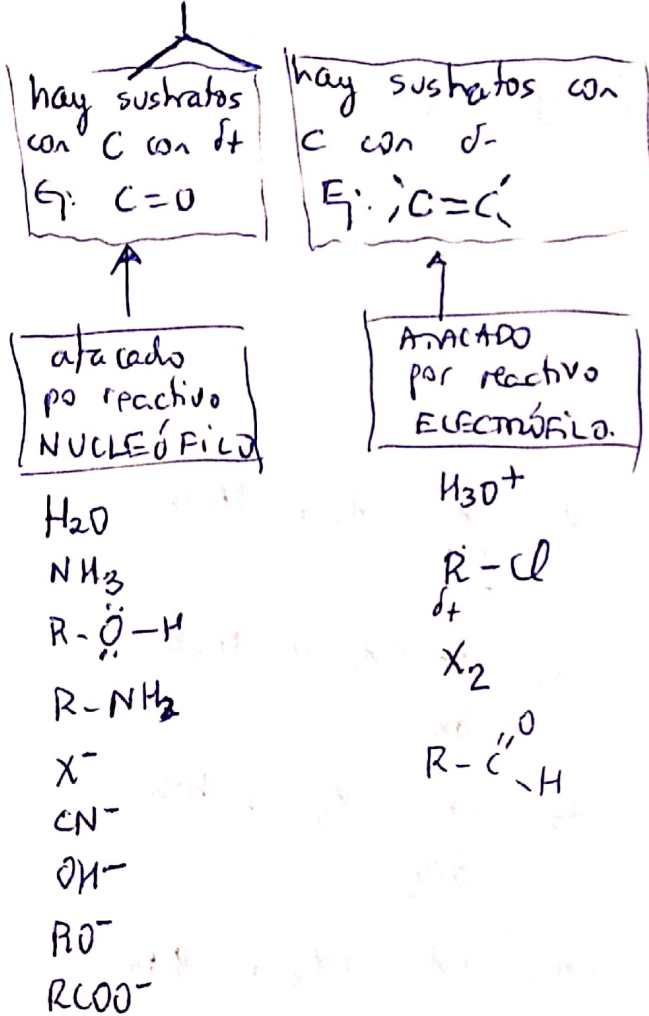 hay sustratos
con C con δ+
Ej: C=O
atacado
po reactivo
NUCLEÓFILO
H2O
NH3
R-Ö-H
R-NH2
X-
CN-
OH-
RO-
RCOO-
hay sustratos con
C con δ-
Ej: C=C
ATACADO
por reactivo
ELECTRÓFILO.
H3O+
R-Cl
δ+
X2
R-C
O
H